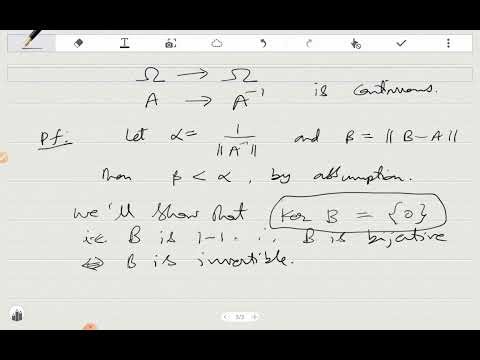 Ω → Ω
A → A⁻¹ is continuous.
Pf: Let α = 1/‖A⁻¹‖ and β = ‖B-A‖
Then β < α, by assumption.
We'll show that Ker B = {0}
ie B is 1-1. ∴ B is bijective
⇔ B is invertible.
3/3